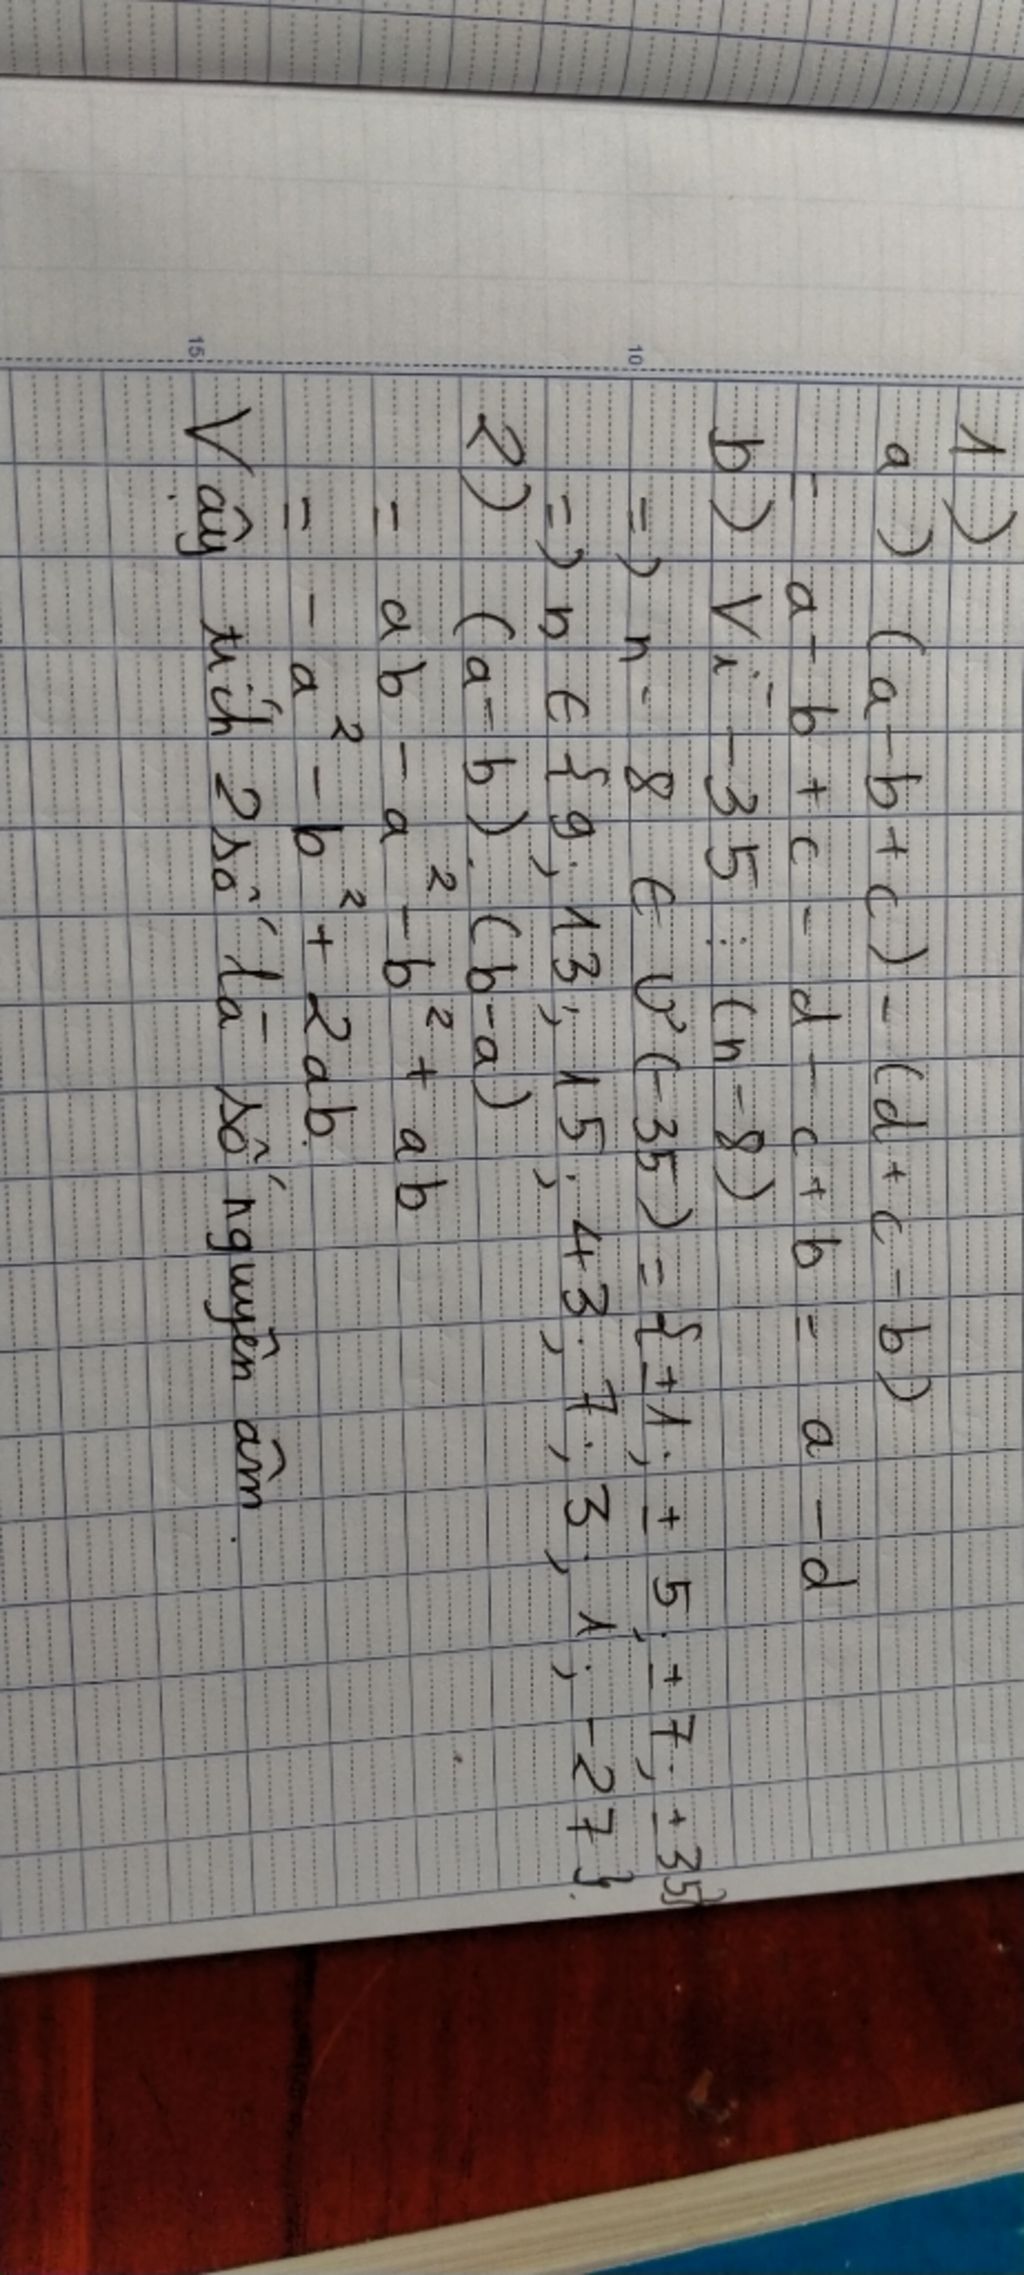 1)
a) (a-b+c) - (d+c-b)
= a-b+c-d-c+b = a-d
b) Vì -35 ⋮ (n-8)
=) n-8 ∈ Ư(-35) = {±1; ±5; ±7; ±35}
=) n ∈ {9; 13; 15; 43; 7; 3; 1; -27}.
2) (a-b).(b-a)
= ab - a² - b² + ab
= -a² - b² + 2ab.
Vậy tích 2 số là số nguyên âm.
10
15